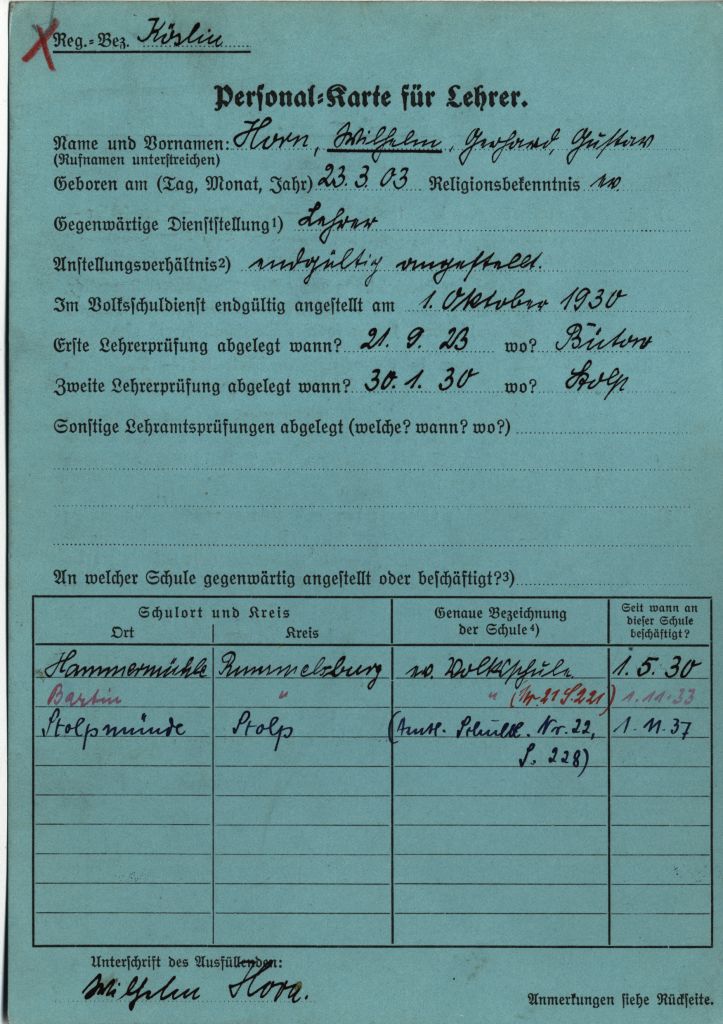 Reg.-Bez. Köslin
Personal-Karte für Lehrer.
Name und Vornamen: Horn, Wilhelm, Gerhard, Gustav
(Rufnamen unterstreichen)
Geboren am (Tag, Monat, Jahr) 23. 3. 03 Religionsbekenntnis ev.
Gegenwärtige Dienststellung1) Lehrer
Anstellungsverhältnis2) endgültig angestellt.
Im Volksschuldienst endgültig angestellt am 1. Oktober 1930
Erste Lehrerprüfung abgelegt wann? 21. 9. 23 wo? Bütow
Zweite Lehrerprüfung abgelegt wann? 30. 1. 30 wo? Stolp
Sonstige Lehramtsprüfungen abgelegt (welche? wann? wo?)
An welcher Schule gegenwärtig angestellt oder beschäftigt?3)
Schulort und Kreis Genaue Bezeichnung der Schule4) Seit wann an dieser Schule beschäftigt?
Ort Kreis
Hammermühle Rummelsburg ev. Volksschule 1. 5. 30
Bartin " " (Nr 21 S. 221) 1. 11. 33
Stolpmünde Stolp (Amtl. Schulbl. Nr. 22, 1. 11. 37
S. 228)
Unterschrift des Ausfüllenden:
Wilhelm Horn.
Anmerkungen siehe Rückseite.